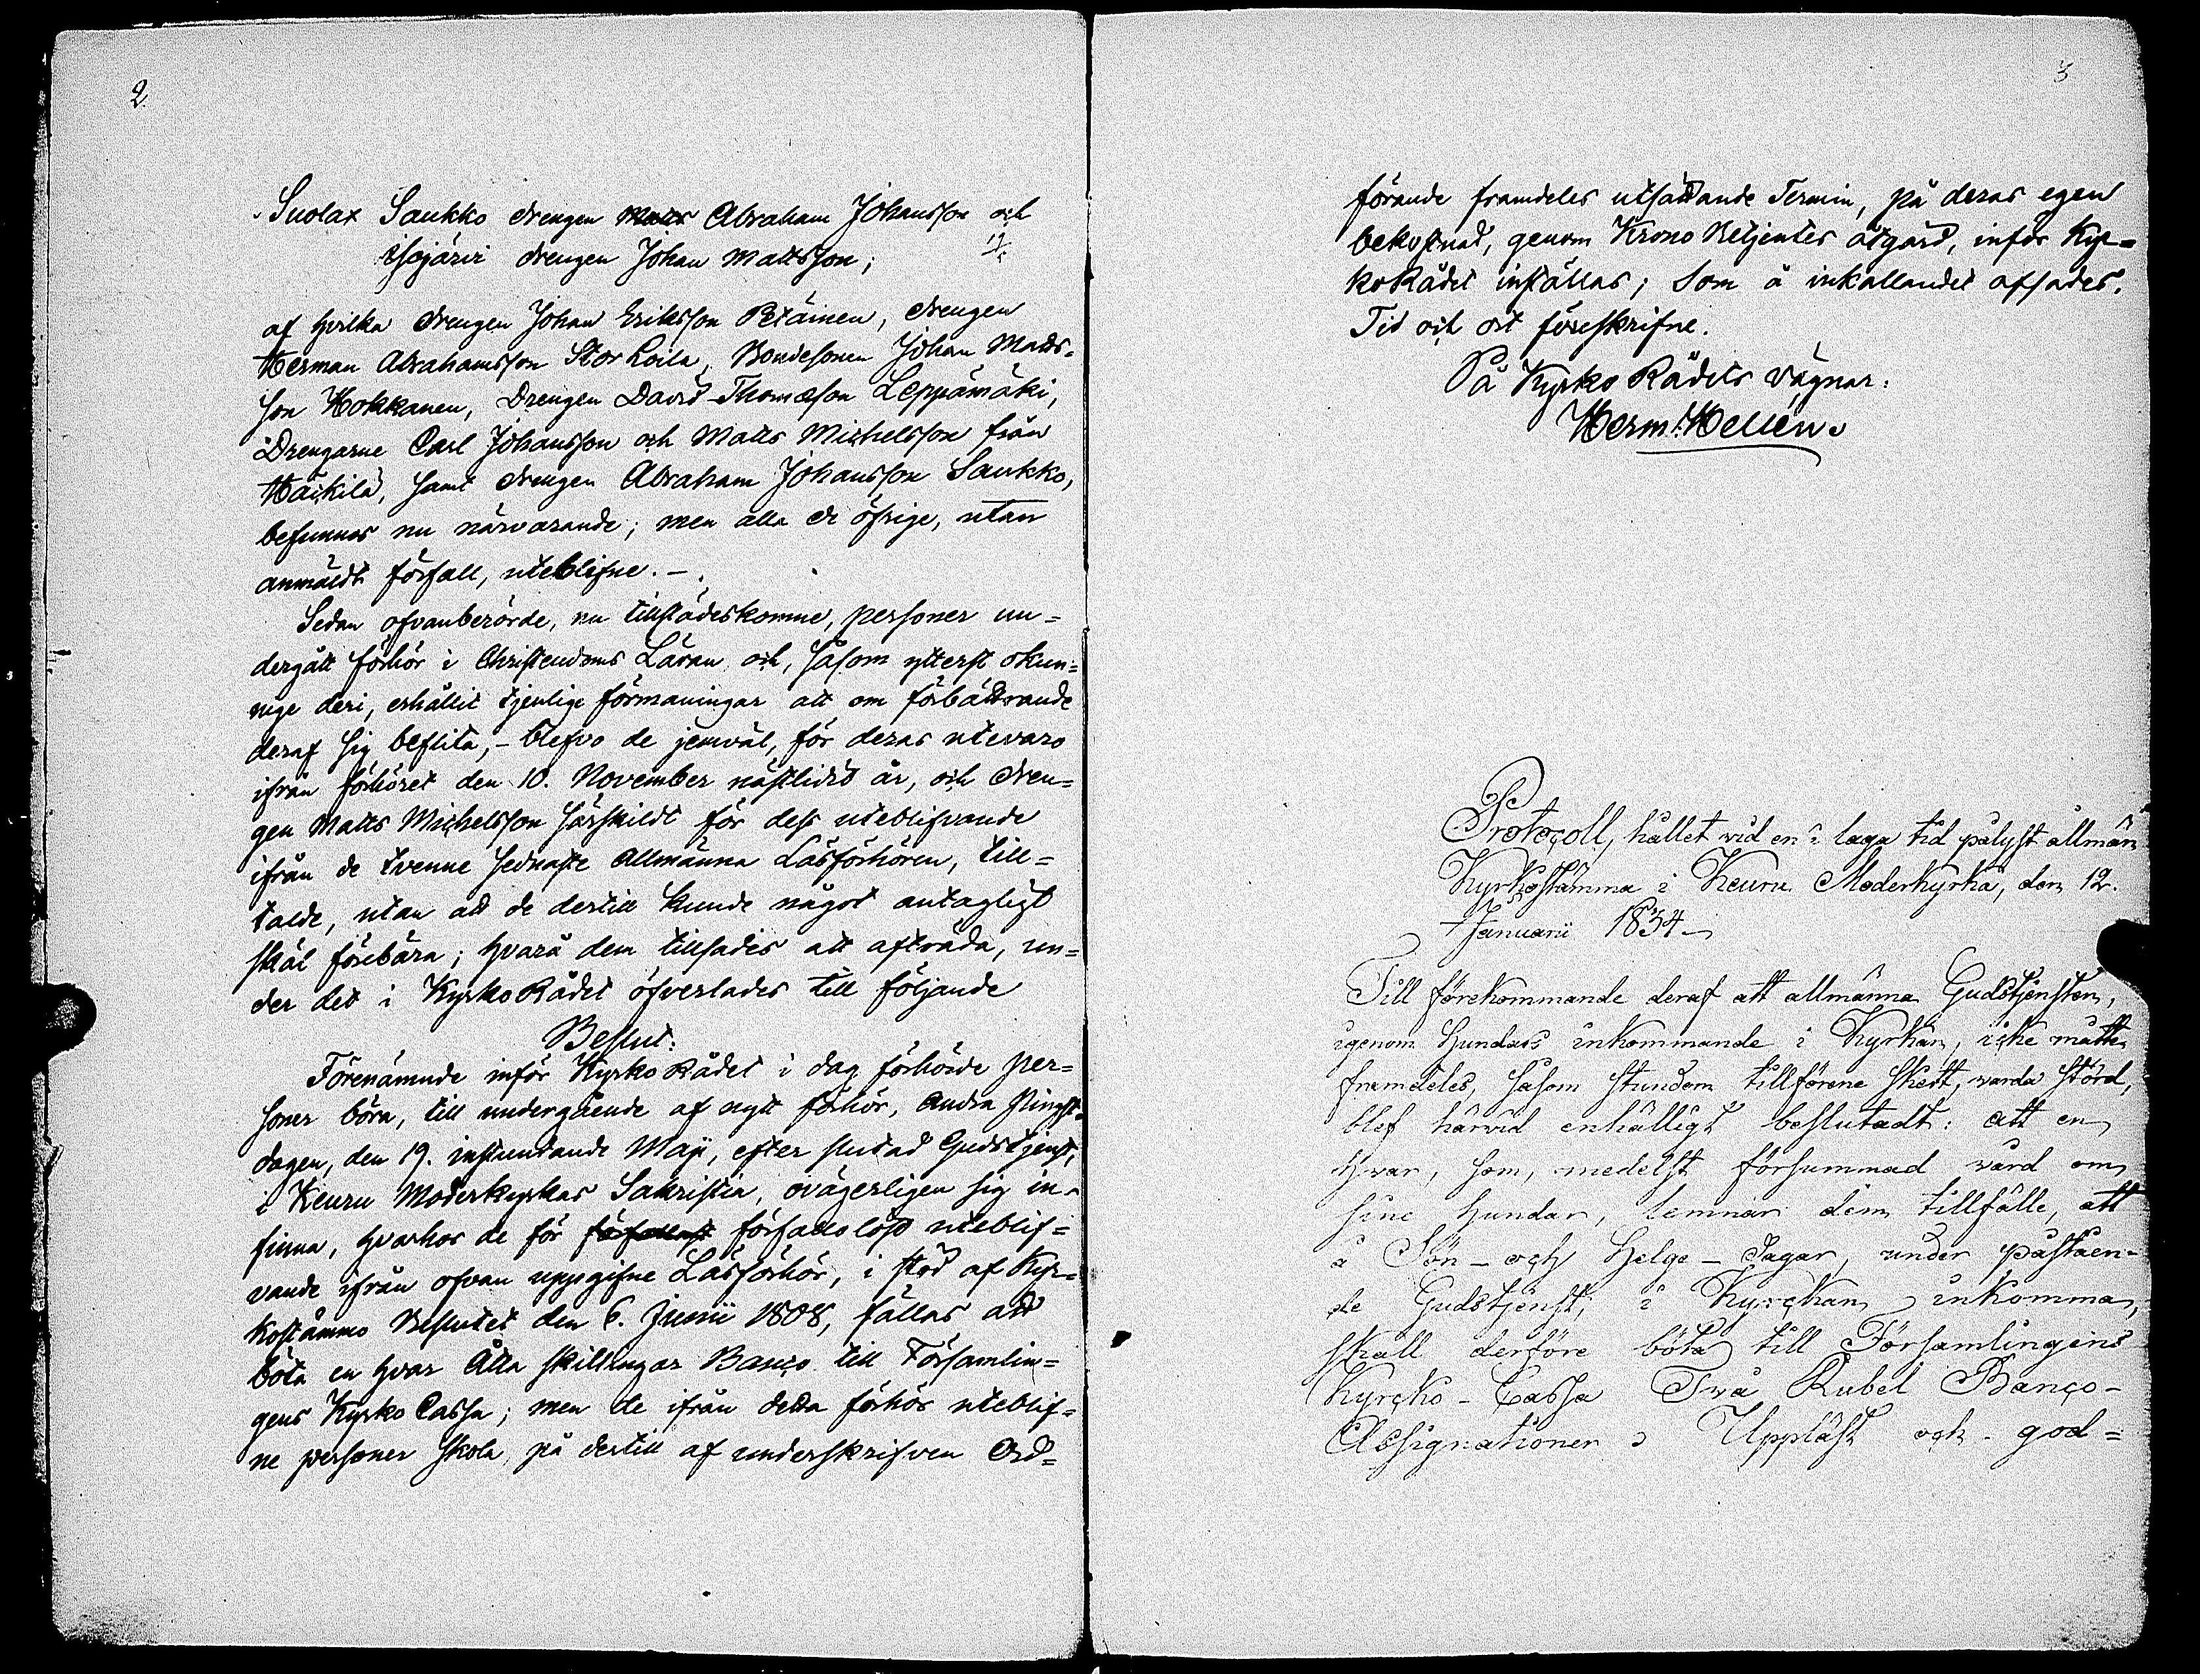 2
Suolax Saukko drengen Abraham Johansson och
Isojärvi drengen Johan Mattsson;
af hvilka drengen Johan Eriksson Petäinen, drengen
Herman Abrahamsson Stor Loila, Bondesonen Johan Matts-
son Hokkanen, Drengen David Thomæson Leppämäki,
Drengarne Carl Johansson och Matts Michelsson från
Häkilä, samt drengen Abraham Johansson Saukko,
befunnos nu närvarande; men alla de öfrige, utan
anmäldt förfall, uteblifne. -
Sedan ofvanberörde, nu tillstädeskomne, personer un=
dergått förhör i Christendoms Läran och, såsom ytterst okun=
nige deri, erhållit tjenlige förmaningar att om förbättrande
deraf sig beflita, - blefvo de jemväl, för deras utevaro
ifrån förhöret den 10. November nästlidit år, och dren=
gen Matts Michelsson särskildt för dess uteblifvande
ifrån de tvenne sednaste Allmänna Läsförhören, till=
talde, utan att de dertill kunde något antagligt
skäl förebära; hvarå dem tillsades att afträda, un=
der det i Kyrko Rådet öfverlades till följande
Beslut:
Förenämnde inför Kyrko Rådet i dag förhörde per=
soner böra, till undergående af nytt förhör, Andra Pingst=
dagen, den 19. instundande Maji, efter slutad Gudstjenst,
i Keuru Moderkyrkas Sakristia, ovägerligen sig in=
finna, hvarhos de för förfallolöst förfallolöst uteblif=
vande ifrån ofvan uppgifne Läsförhör, i stöd af Kyr=
kostämmo Beslutet den 6. Junii 1808, fällas att
böta en hvar Åtta skillingar Banco till Församlin=
gens Kyrko Cassa; men de ifrån detta förhör uteblif=
ne personer skola, på dertill af underskrifven Ord=
3
förande framdeles utsättande Termin, på deras egen
bekostnad, genom Krono Betjentes åtgärd, inför Kyr=
koRådet inställas; Som å inkallandet afsades.
Tid och ort föreskrifne.
På Kyrko Rådets vägnar:
Herm: Hellén.
Protocoll, hållet vid en i laga tid pålyst allmän
Kyrkostämma i Keuru Moderkyrka, den 12.
Januarii 1834
Till förekommande deraf att allmänna Gudstjensten,
igenom Hundars inkommande i Kyrkan, icke måtte
framdeles, såsom stundom tillförene skett, warda störd,
blef härvid enhälligt beslutadt: att en
hvar, som, medelst försummad vård om
sine hundar, lemnar dem tillfälle, att
å Sön- och Helge-Dagar, under påståen-
de Gudstjenst, i Kyrckan inkomma,
skall derföre böta till Församlingens
Kyrcko-Cassa Två Rubel Banco-
Assignationer. Uppläst och god=